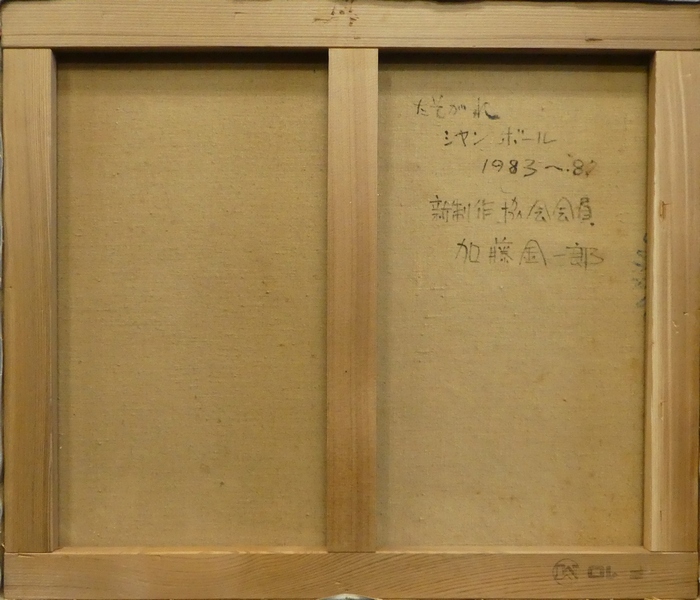 たそがれ
シャンボール
1983〜
新制作協会会員
加藤金一郎